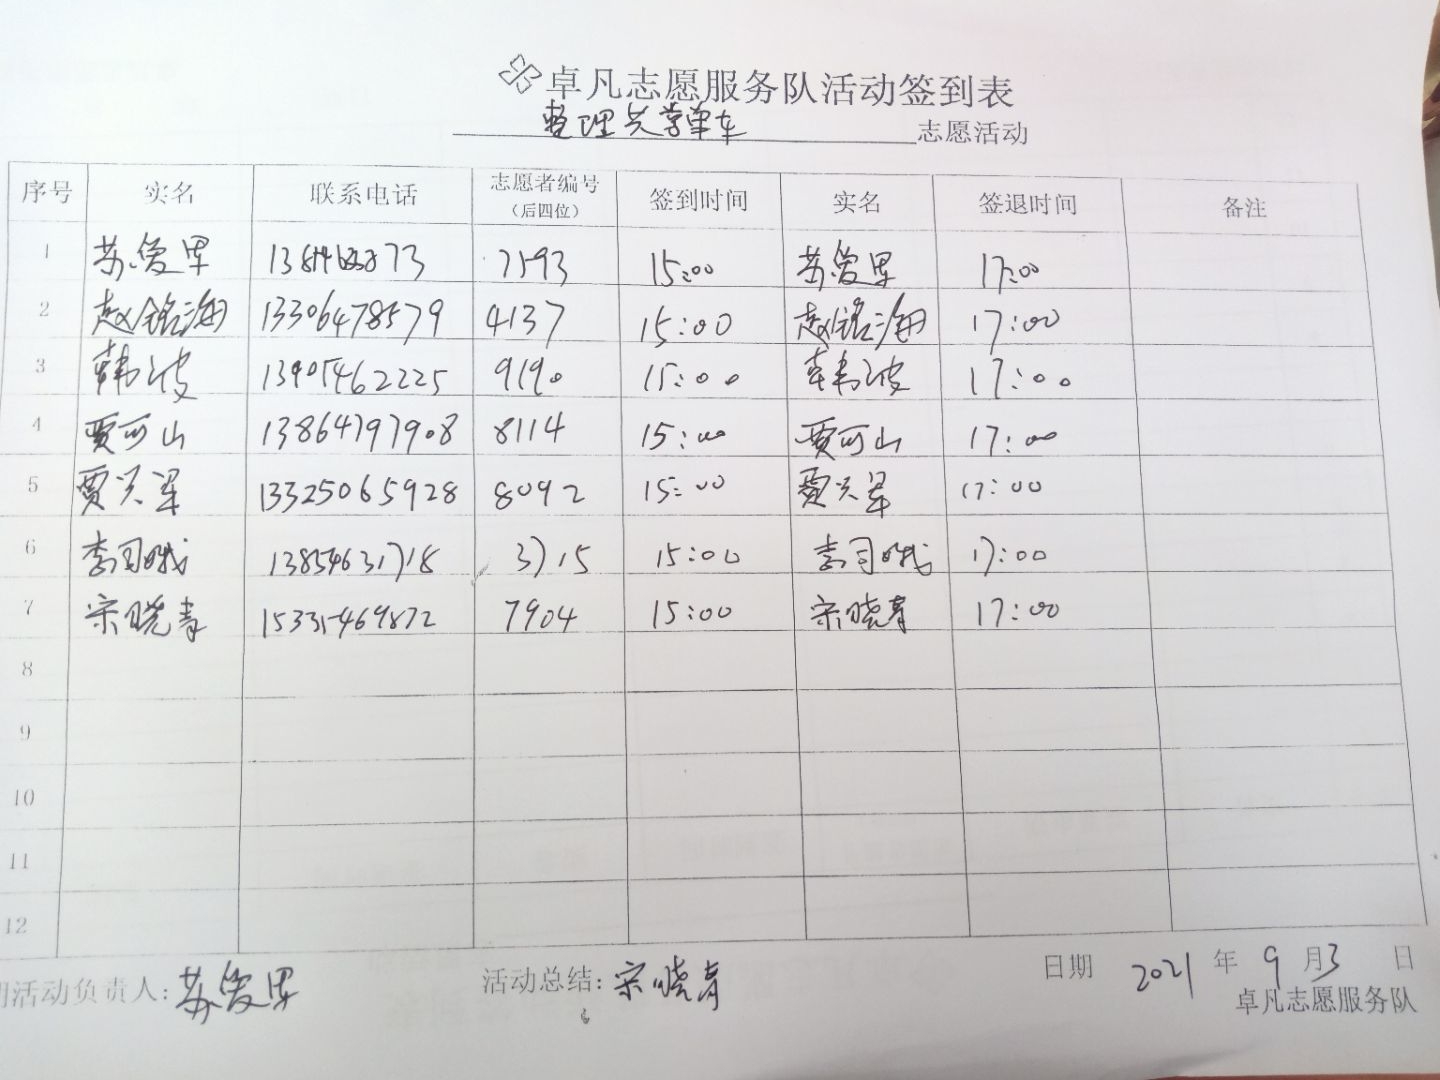 卓凡志愿服务队活动签到表
整理共享单车 志愿活动
序号 实名 联系电话 志愿者编号（后四位） 签到时间 实名 签退时间 备注
1 苏爱军 7593 15:00 苏爱军 17:00
2 赵铭海 13306478579 4137 15:00 赵铭海 17:00
3 韩波 13905462225 9190 15:00 韩波 17:00
4 贾可山 13864797908 8114 15:00 贾可山 17:00
5 贾兴军 13325065928 8092 15:00 贾兴军 17:00
6 李司晓 13854631718 3715 15:00 李司晓 17:00
7 宋晓青 15315469872 7904 15:00 宋晓青 17:00
8
9
10
11
12
期活动负责人:苏爱军 活动总结:宋晓青 日期 2021 年 9 月 3 日
卓凡志愿服务队